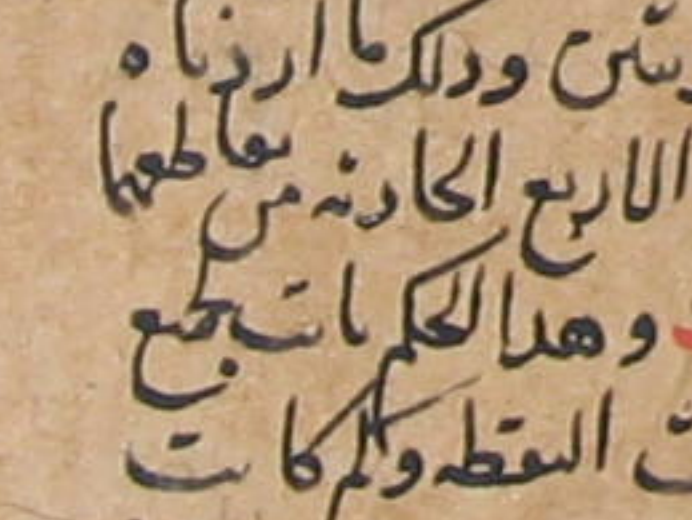 وذلك ما اردناه
الاربع الحادثه من تقاطعهما
وهذا الحكم ثابت لجميع
النقطه ولم كانت